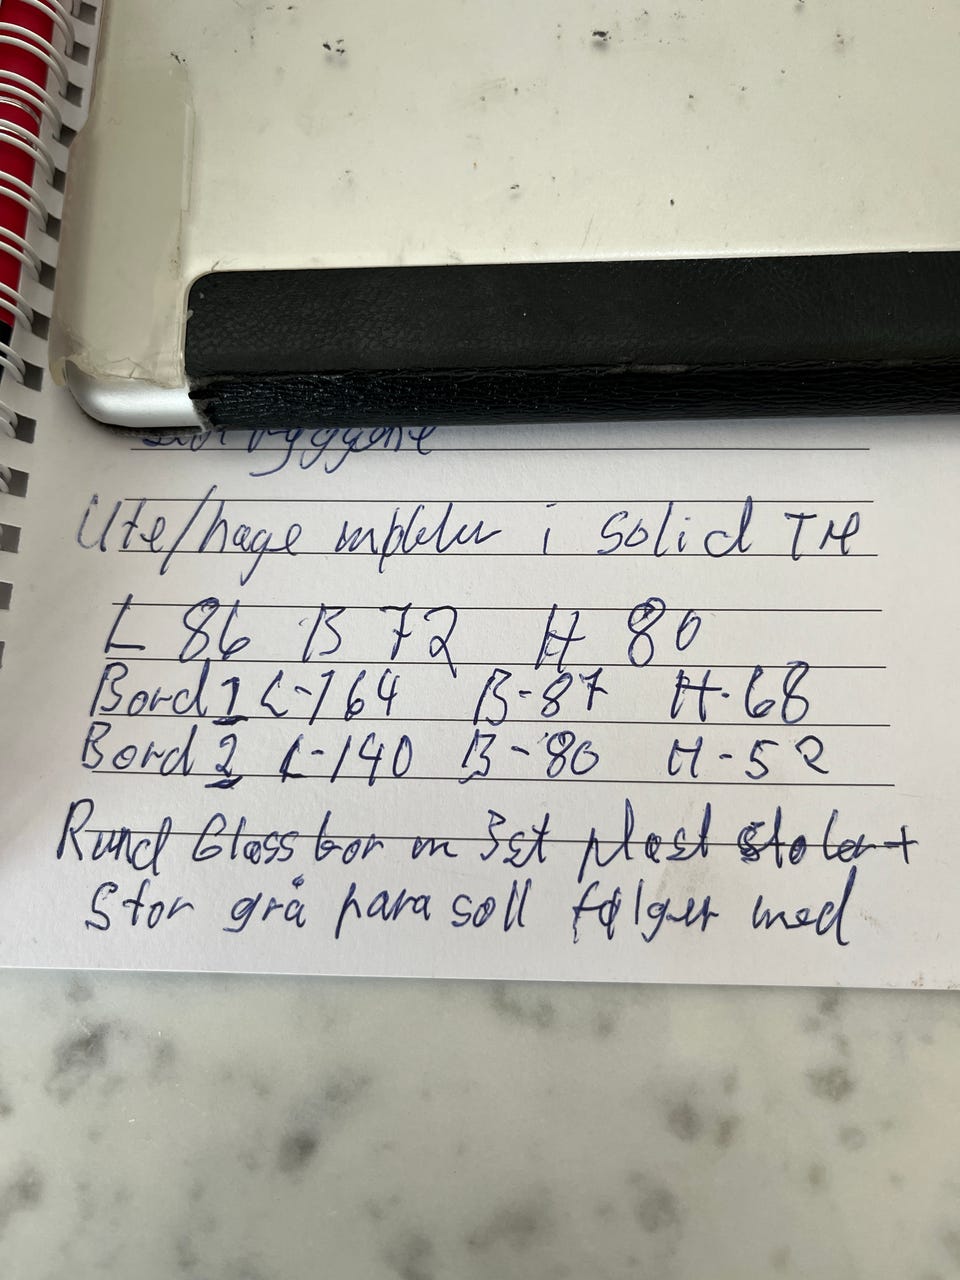 ryggene
Ute/hage møbler i Solid TRE
L 86 B 72 H 80
Bord 1 L-164 B-87 H-68
Bord 2 L-140 B-80 H-52
Rund Glass bor m 3st plast stoler +
Stor grå para soll følger med